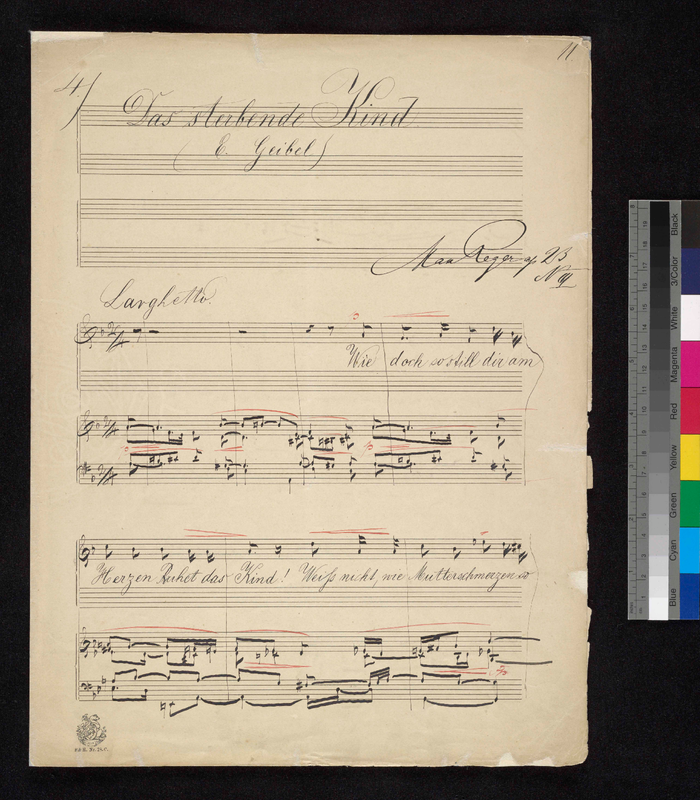 11
4)
Das sterbende Kind
(E. Geibel)
Max Reger op 23
Larghetto.
Wie doch so still dir am
Herzen Ruhet das Kind! Weiß nicht, wie Mutterschmerzen so
Blue Cyan Green Yellow Red Magenta White 3/Color Black